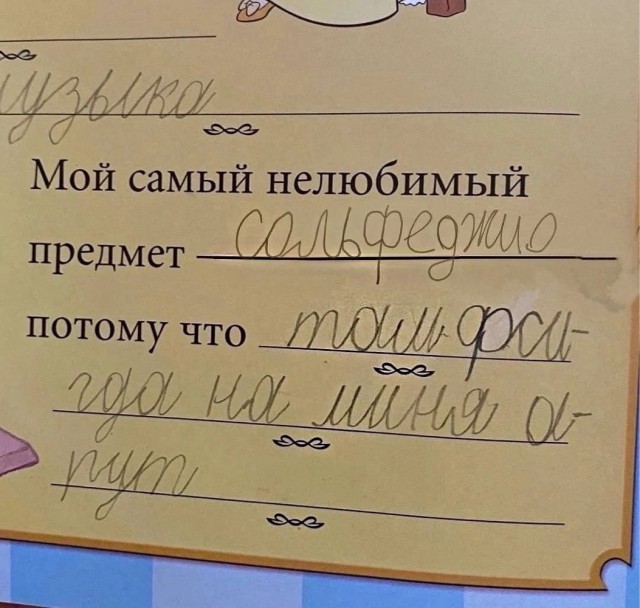 музыка
Мой самый нелюбимый
предмет сольфеджио
потому что там фси-
гда на миня а-
рут